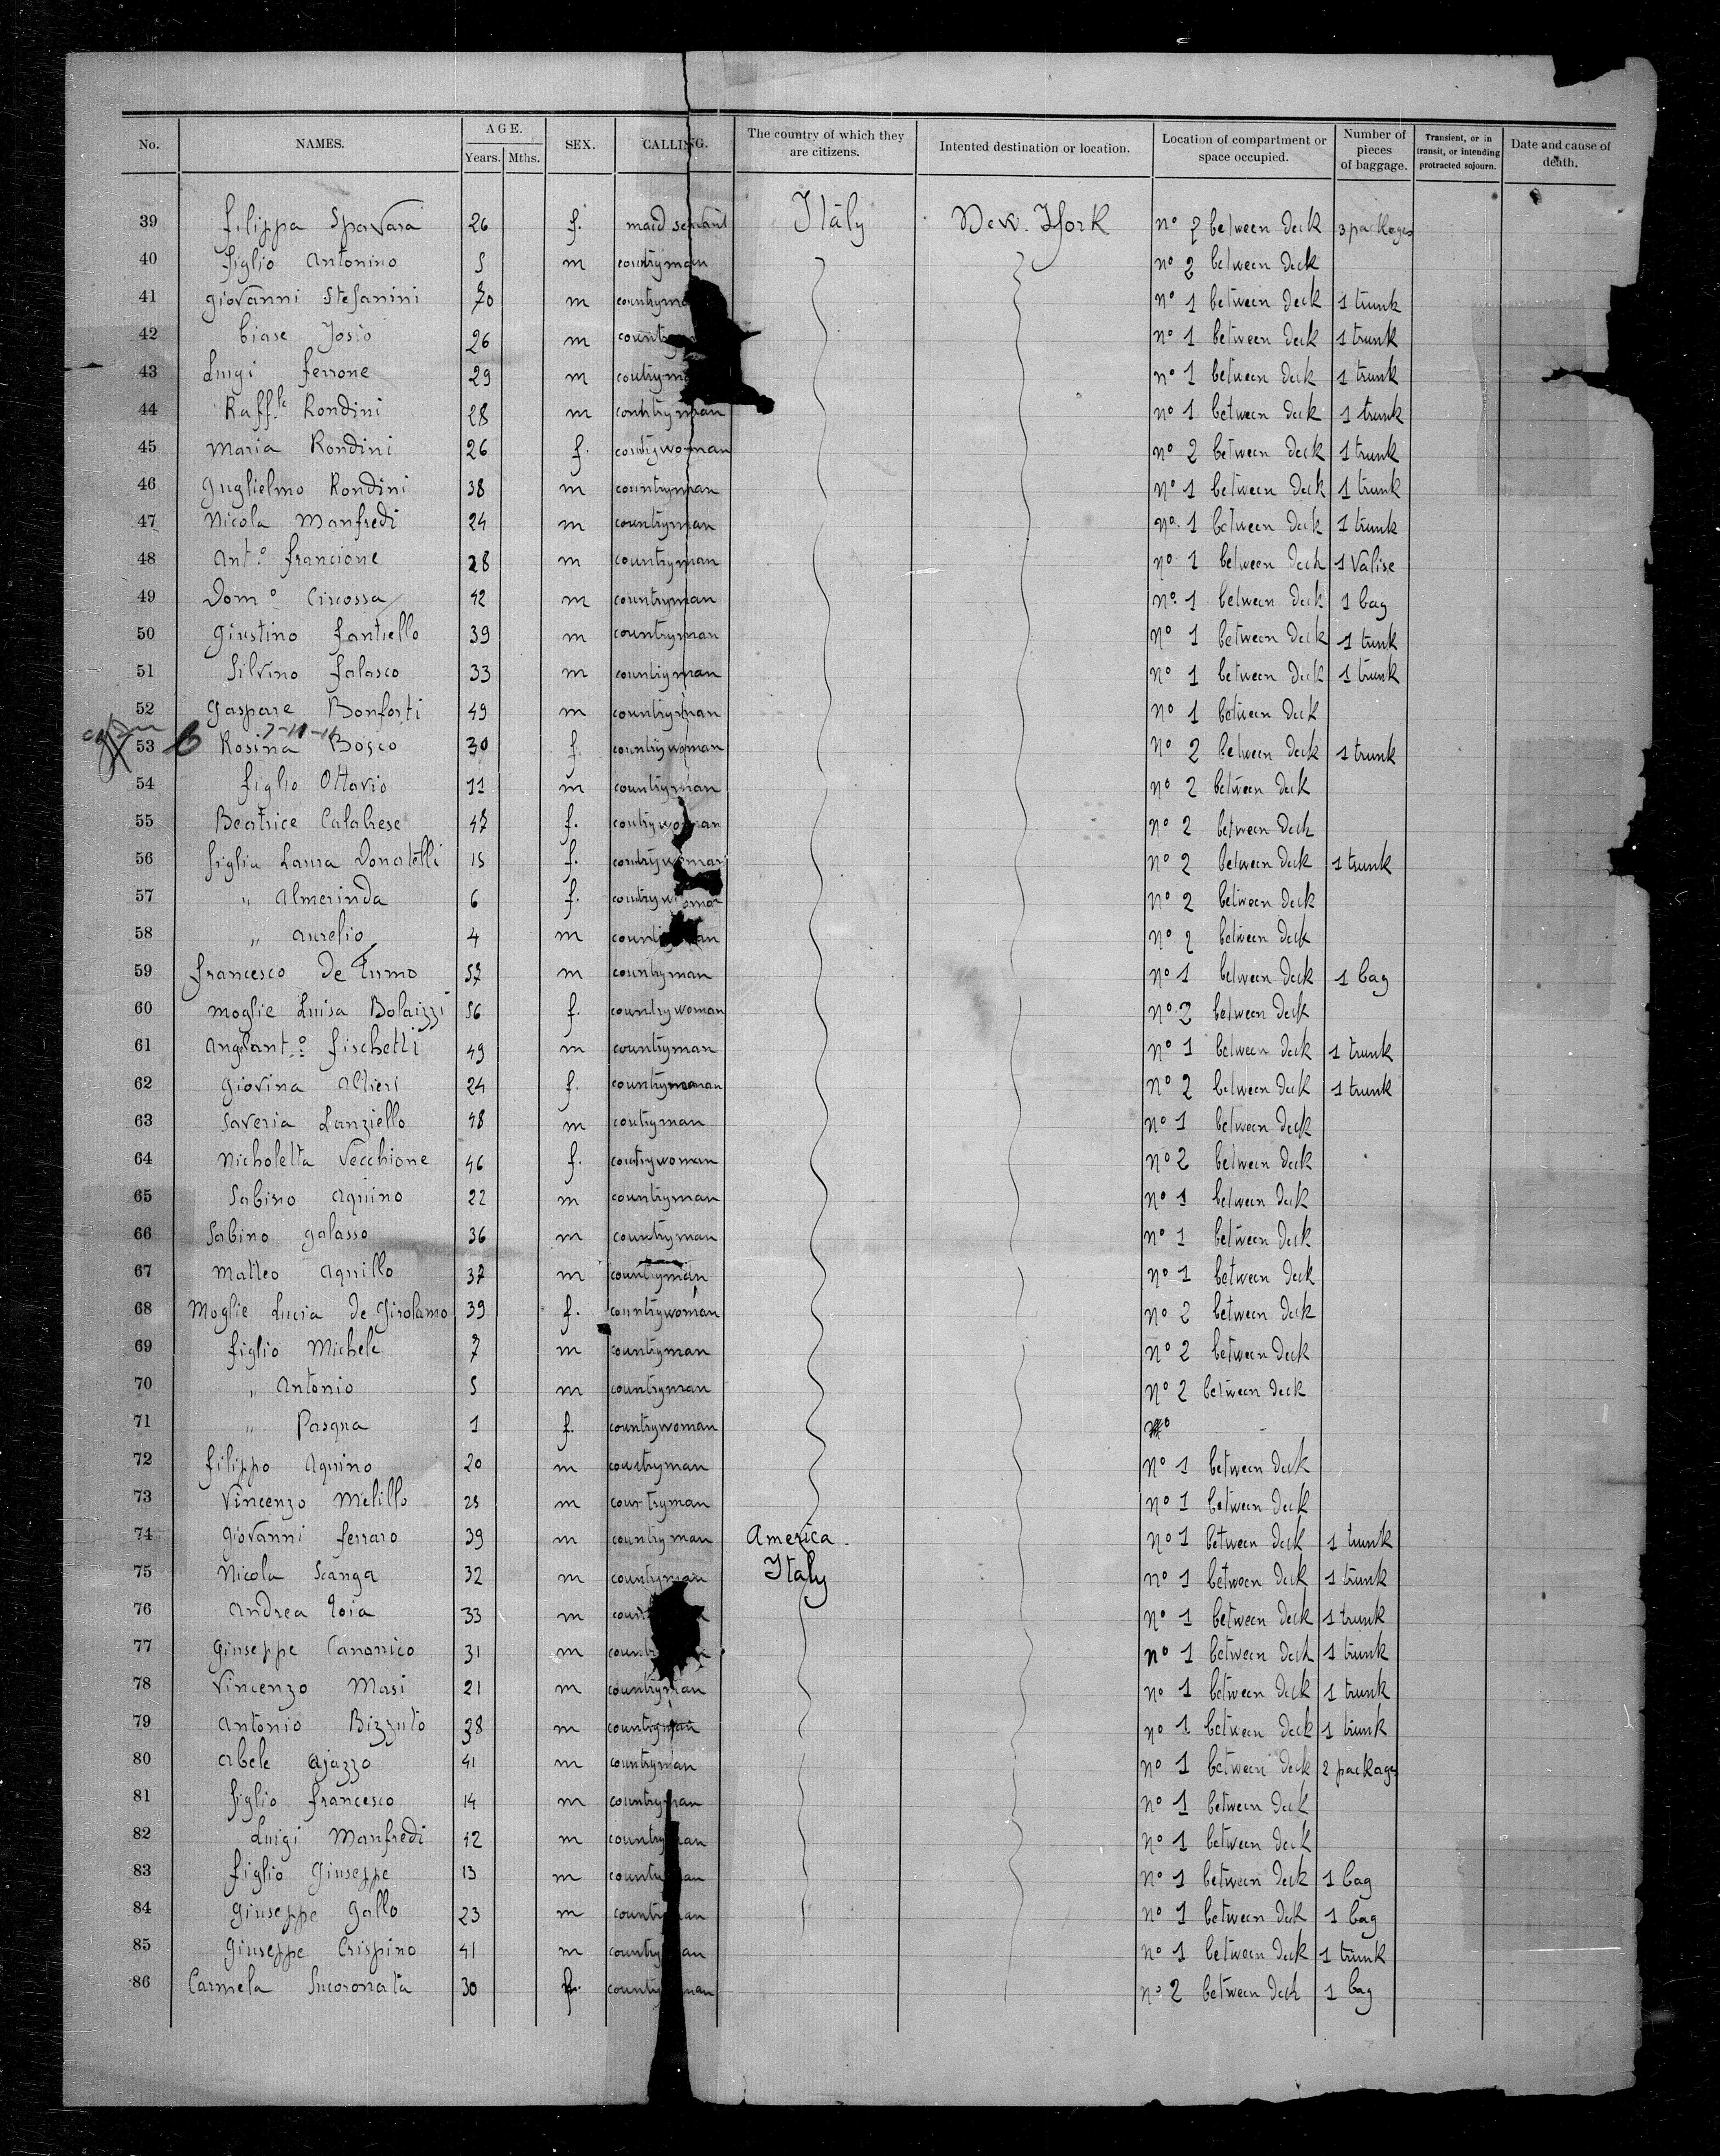 No. NAMES. AGE. Years. Mths. SEX. CALLING. The country of which they are citizens. Intented destination or location. Location of compartment or space occupied. Number of pieces of baggage. Transient, or in transit, or intending protracted sojourn. Date and cause of death.
39 filippa Spavara 26 f. maid servant Italy New. York nº 2 between deck 3 packages
40 figlio Antonino 5 m countryman nº 2 between deck
41 Giovanni Stefanini 70 m countryman nº 1 between deck 1 trunk
42 Biase Josio 26 m country nº 1 between deck 1 trunk
43 Luigi ferrone 29 m coutryma nº 1 between deck 1 trunk
44 Raff.le Rondini 28 m countryman nº 1 between deck 1 trunk
45 Maria Rondini 26 f. countrywoman nº 2 between deck 1 trunk
46 Guglielmo Rondini 38 m countryman nº 1 between deck 1 trunk
47 Nicola Manfredi 24 m countryman nº 1 between deck 1 trunk
48 Ant.º francione 28 m countryman nº 1 between deck 1 valise
49 Dom.º Circossa 42 m countryman nº 1 between deck 1 bag
50 Giustino fantiello 39 m countryman nº 1 between deck 1 trunk
51 Silvino falasco 33 m countryman nº 1 between deck 1 trunk
52 Gaspare Bonforti 49 m countryman nº 1 between deck
53 Rosina Bosco 30 f countrywoman nº 2 between deck 1 trunk
54 figlio Ottavio 11 m countryman nº 2 between deck
55 Beatrice Calabrese 47 f. coutrywoman nº 2 between deck
56 figlia Laura Donatelli 15 f. countrywoman nº 2 between deck 1 trunk
57 " Almerinda 6 f. countrywoman nº 2 between deck
58 " Aurelio 4 m countryman nº 2 between deck
59 francesco De Tumo 57 m countryman nº 1 between deck 1 bag
60 moglie Luisa Bolaizzi 56 f. countrywoman nº 2 between deck
61 Angelant.º fischetti 49 m countryman nº 1 between deck 1 trunk
62 Giovina Altieri 24 f. countrywoman nº 2 between deck 1 trunk
63 Saveria Lanziello 48 m coutryman nº 1 between deck
64 Nicholetta Vecchione 46 f. coutrywoman nº 2 between deck
65 Sabino Aquino 22 m countryman nº 1 between deck
66 Sabino Galasso 36 m countryman nº 1 between deck
67 Matteo Aquillo 37 m countryman nº 1 between deck
68 Moglie Lucia De Girolamo 39 f. countrywoman nº 2 between deck
69 figlio Michele 7 m countryman nº 2 between deck
70 " Antonio 5 m countryman nº 2 between deck
71 " Pasqua 1 f. countrywoman nº
72 filippo Aquino 20 m countryman nº 1 between deck
73 Vincenzo Melillo 25 m countryman nº 1 between deck
74 Giovanni ferraro 39 m countryman America. nº 1 between deck 1 trunk
75 Nicola Scanga 32 m countryman Italy nº 1 between deck 1 trunk
76 Andrea Ioia 33 m count nº 1 between deck 1 trunk
77 Giuseppe Canonico 31 m countr nº 1 between deck 1 trunk
78 Vincenzo Masi 21 m countryman nº 1 between deck 1 trunk
79 Antonio Bizzuto 38 m countryman nº 1 between deck 1 trunk
80 Abele Ajazzo 41 m countryman nº 1 between deck 2 packages
81 figlio francesco 14 m countryman nº 1 between deck
82 Luigi Manfredi 42 m countryman nº 1 between deck
83 figlio Giuseppe 13 m countryman nº 1 between deck 1 bag
84 Giuseppe Gallo 23 m countryman nº 1 between deck 1 bag
85 Giuseppe Crispino 41 m countryman nº 1 between deck 1 trunk
86 Carmela Incoronata 30 f. countryman nº 2 between deck 1 bag